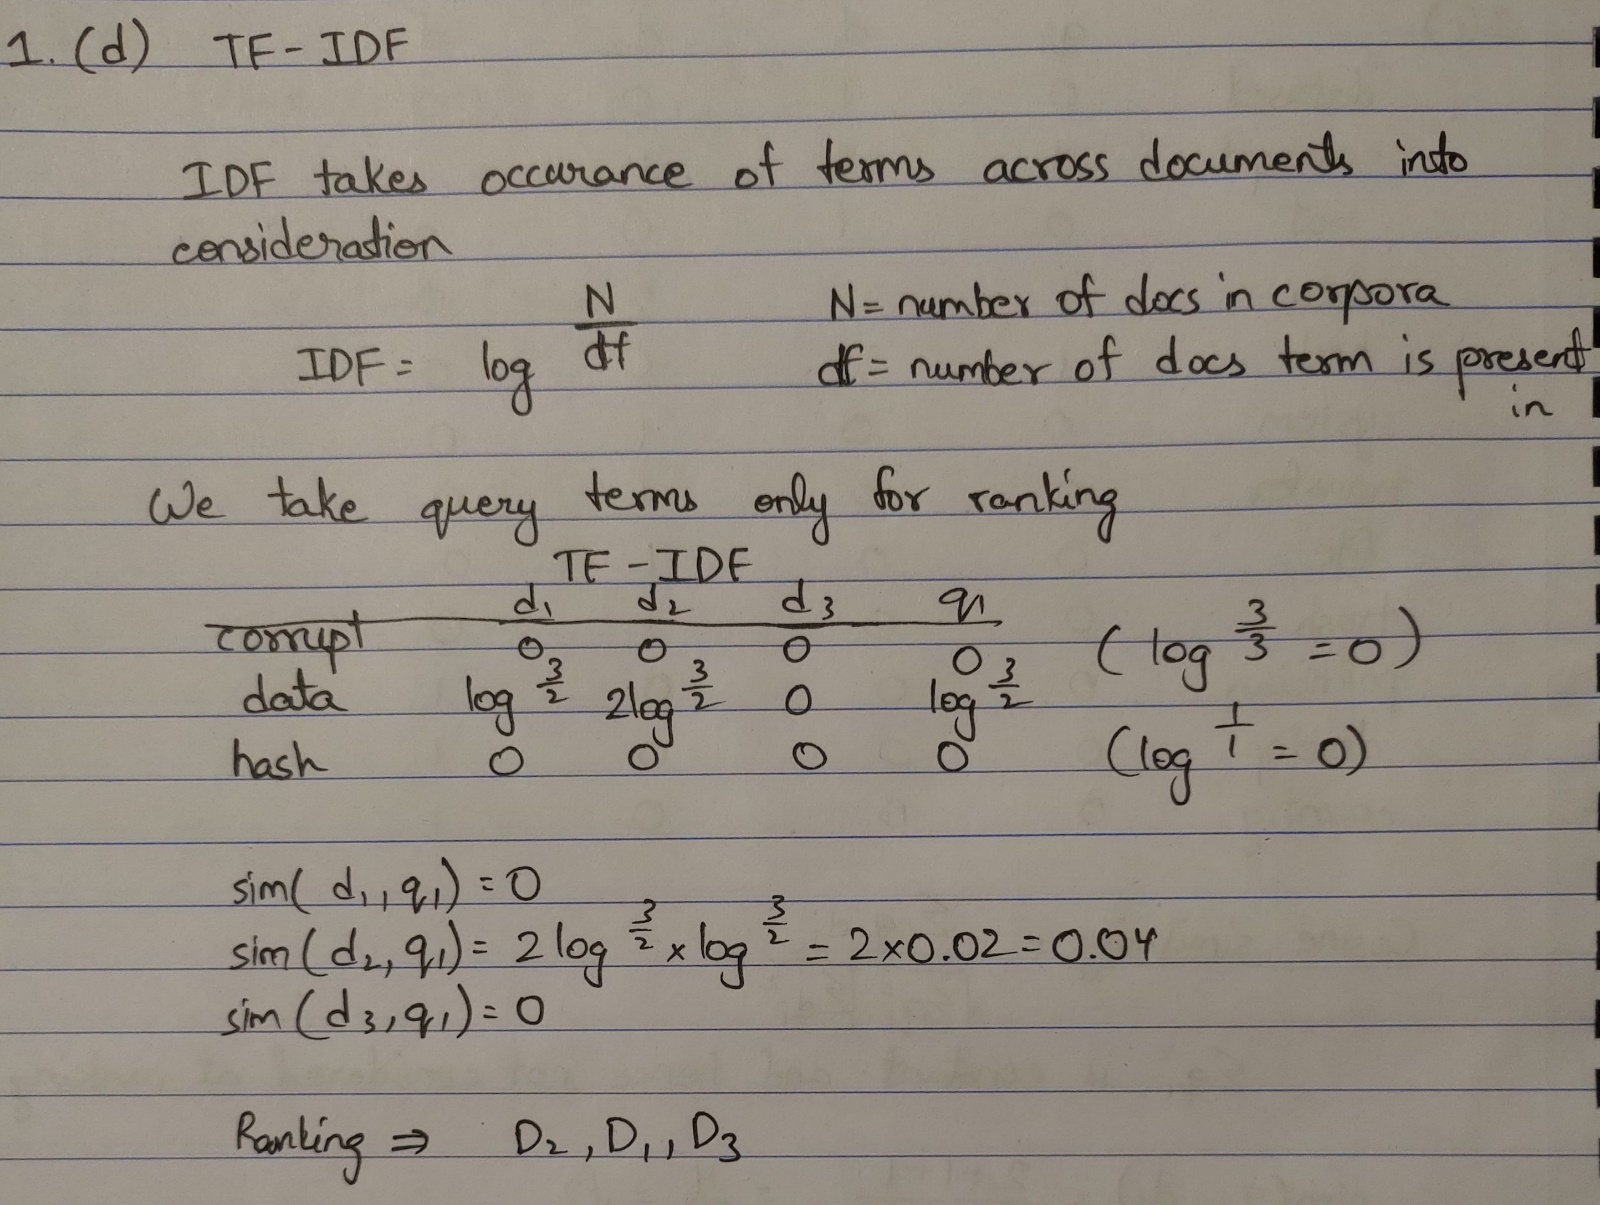 1. (d) TF-IDF
IDF takes occurance of terms across documents into
consideration
IDF = log N/df
N = number of docs in corpora
df = number of docs term is present
in
We take query terms only for ranking
TF-IDF
d1 d2 d3 q1
corrupt 0 0 0 0 (log 3/3 = 0)
data log 3/2 2log 3/2 0 log 3/2
hash 0 0 0 0 (log 1/1 = 0)
sim(d1, q1) = 0
sim(d2, q1) = 2 log 3/2 x log 3/2 = 2x0.02 = 0.04
sim(d3, q1) = 0
Ranking ⇒ D2, D1, D3